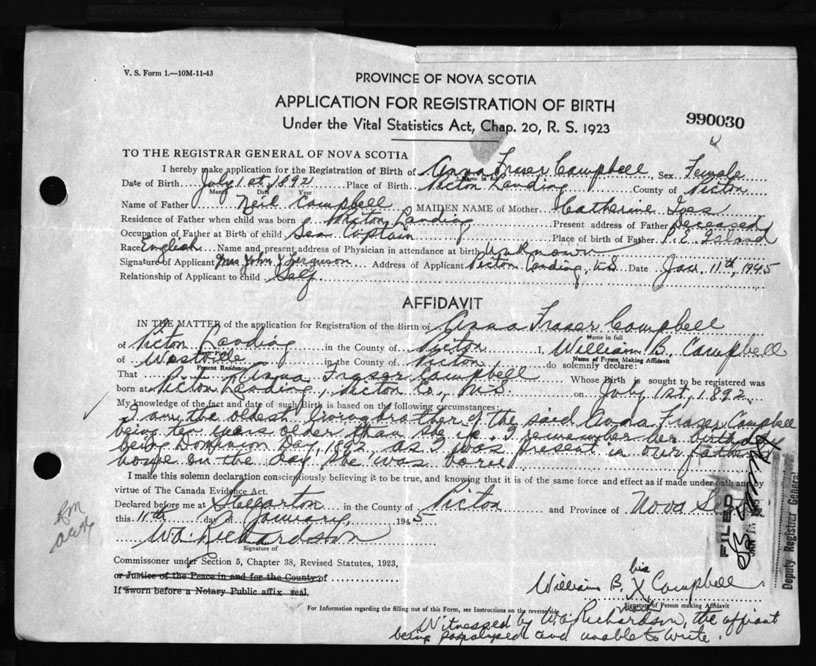 V. S. Form 1.—10M-11-43
PROVINCE OF NOVA SCOTIA
APPLICATION FOR REGISTRATION OF BIRTH
990030
Under the Vital Statistics Act, Chap. 20, R. S. 1923
TO THE REGISTRAR GENERAL OF NOVA SCOTIA
I hereby make application for the Registration of Birth of Anna Fraser Campbell, Sex Female
Name in full
Date of Birth July 1st, 1892 Place of Birth Picton Landing County of Picton
Month Date Year
Name of Father Neil Campbell MAIDEN NAME of Mother Catherine Ives
Residence of Father when child was born Picton Landing Present address of Father Deceased
Occupation of Father at Birth of child Sea Captain Place of birth of Father P. E. Island
Race English Name and present address of Physician in attendance at birth Unknown
Signature of Applicant Mrs John Ferguson Address of Applicant Picton Landing, N.S. Date Jan. 11th, 1945
Relationship of Applicant to child Self
AFFIDAVIT
IN THE MATTER of the application for Registration of the Birth of Anna Fraser Campbell
Name in full
of Picton Landing in the County of Picton I, William B. Campbell
Name of Person Making Affidavit
of Westville in the County of Picton do solemnly declare:
Present Residence
That Anna Fraser Campbell Whose Birth is sought to be registered was
born at Picton Landing, Picton Co., N.S. on July 1st, 1892
My knowledge of the fact and date of such Birth is based on the following circumstances:
I am the oldest living brother of the said Anna Fraser Campbell
being ten years older than she is. I remember her birthday
being Dominion Day, 1892, as I was present in our father's
house on the day she was born
I make this solemn declaration conscientiously believing it to be true, and knowing that it is of the same force and effect as if made under oath and by
virtue of The Canada Evidence Act.
Declared before me at Stellarton in the County of Picton and Province of Nova
this 11th day of January 1945
W.A. Richardson
Signature of
Commissioner under Section 5, Chapter 38, Revised Statutes, 1923,
or Justice of the Peace in and for the County of
If sworn before a Notary Public affix seal.
his
William B. X Campbell
mark
Signature of Person making Affidavit
For Information regarding the filling out of this Form, see Instructions on the reverse
Witnessed by W.A. Richardson, the affiant
being paralysed and unable to write.
FILED
Deputy Registrar General